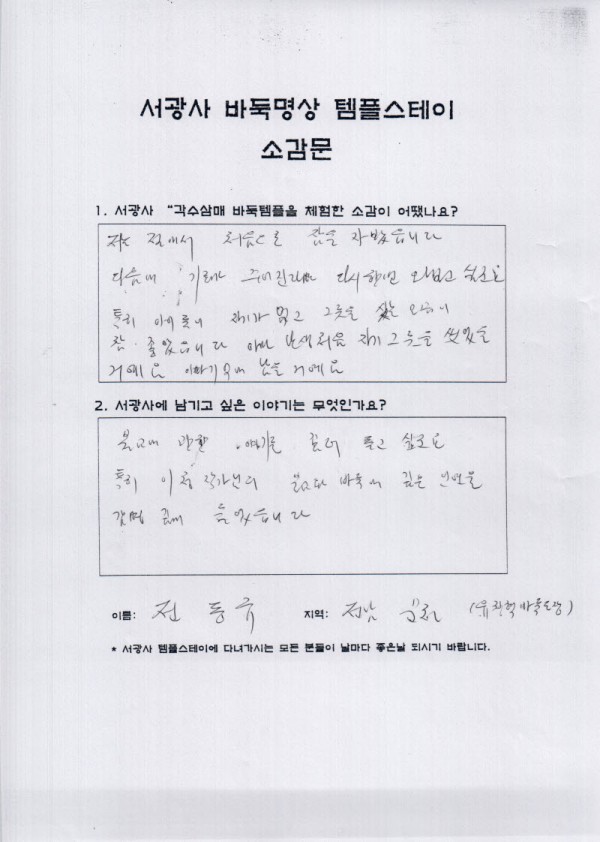 서광사 바둑명상 템플스테이
소감문
1. 서광사 "각수삼매 바둑템플을 체험한 소감이 어땠나요?
저는 절에서 처음으로 잠을 자 봤습니다
다음에 기회가 주어진다면 다시 한번 와보고 싶군요
특히 아이들이 자기가 먹고 그릇을 씻는 모습이
참 좋았습니다 아마 난생처음 자기 그릇을 씻었을
거예요 이야기 거리 남을 거예요
2. 서광사에 남기고 싶은 이야기는 무엇인가요?
불교에 관한 얘기를 좀더 듣고 싶군요
특히 작가님의 불교와 바둑의 깊은 인연을
감명 깊게 들었습니다
이름: 전 동 규 지역: 전남 순천 (유창혁바둑도장)
* 서광사 템플스테이에 다녀가시는 모든 분들이 날마다 좋은날 되시기 바랍니다.